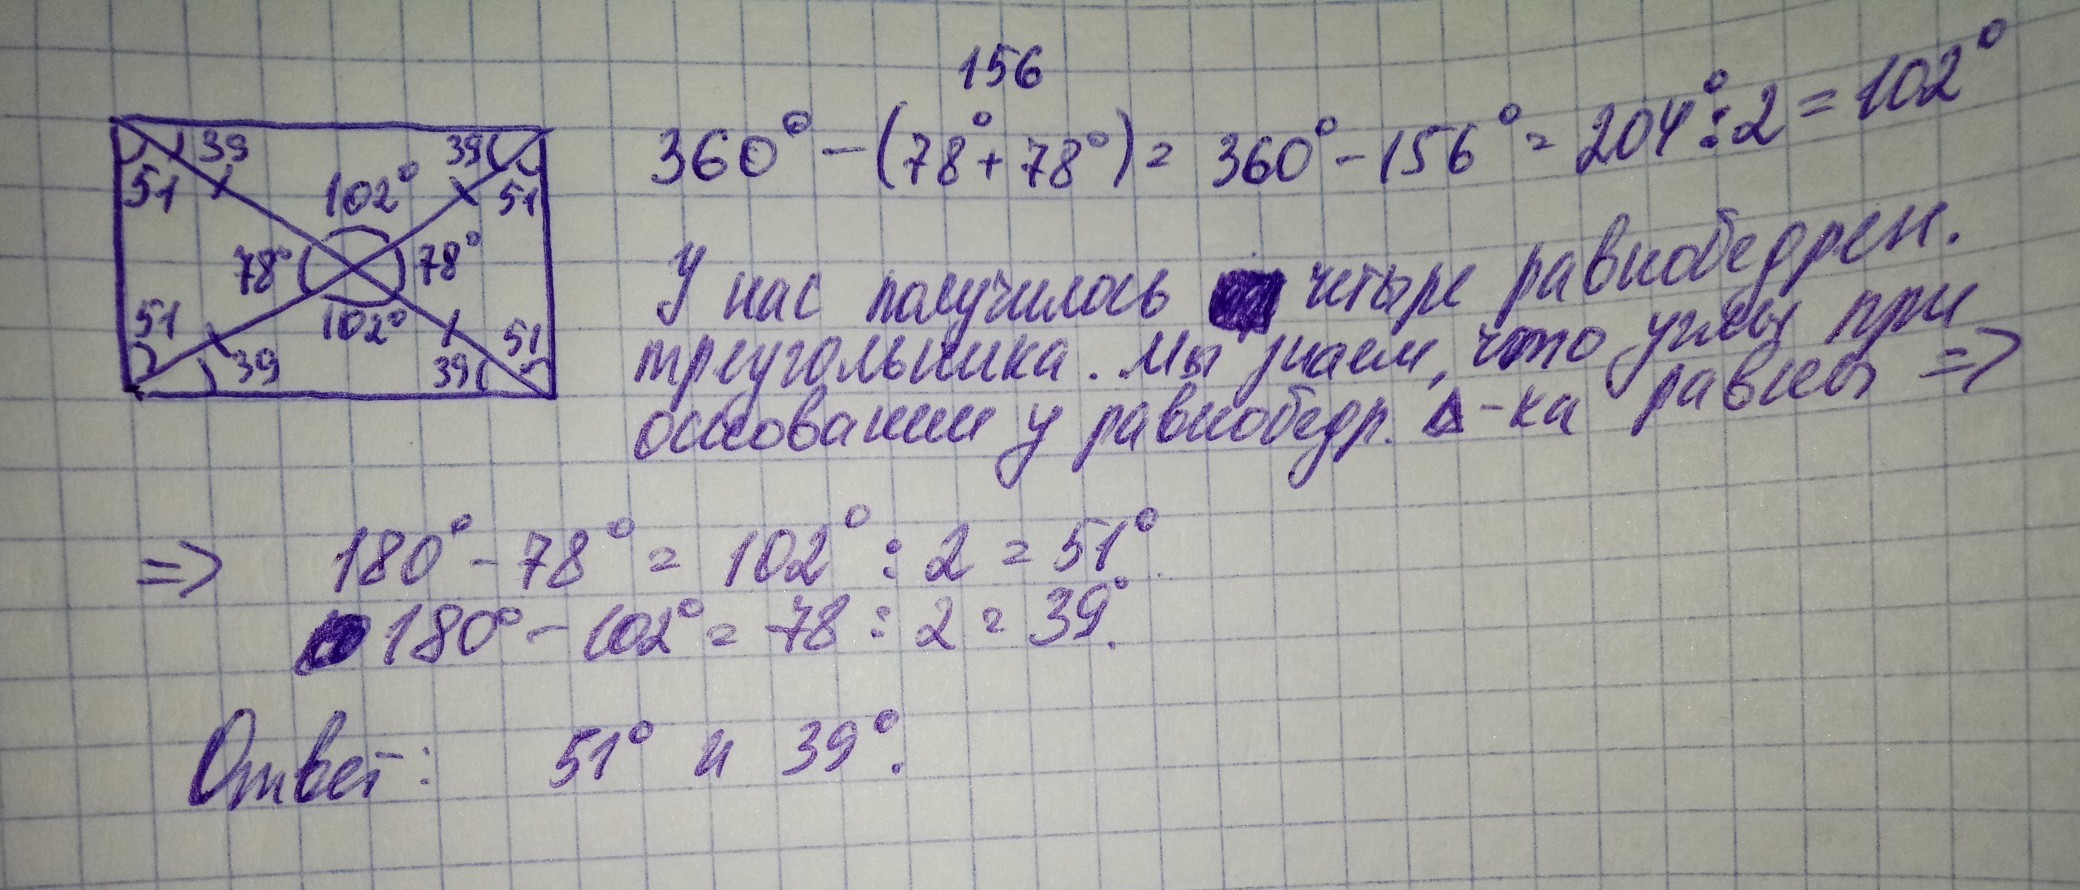 156
360° - (78° + 78°) = 360° - 156° = 204° : 2 = 102°
39 39
51 102° 51
78° 78°
51 102° 51
39 39
У нас получилось четыре равнобедрен.
треугольника. Мы знаем, что углы при
основании у равнобедр. Δ-ка равны =>
=> 180° - 78° = 102° : 2 = 51°.
180° - 102° = 78 : 2 = 39°.
Ответ: 51° и 39°.